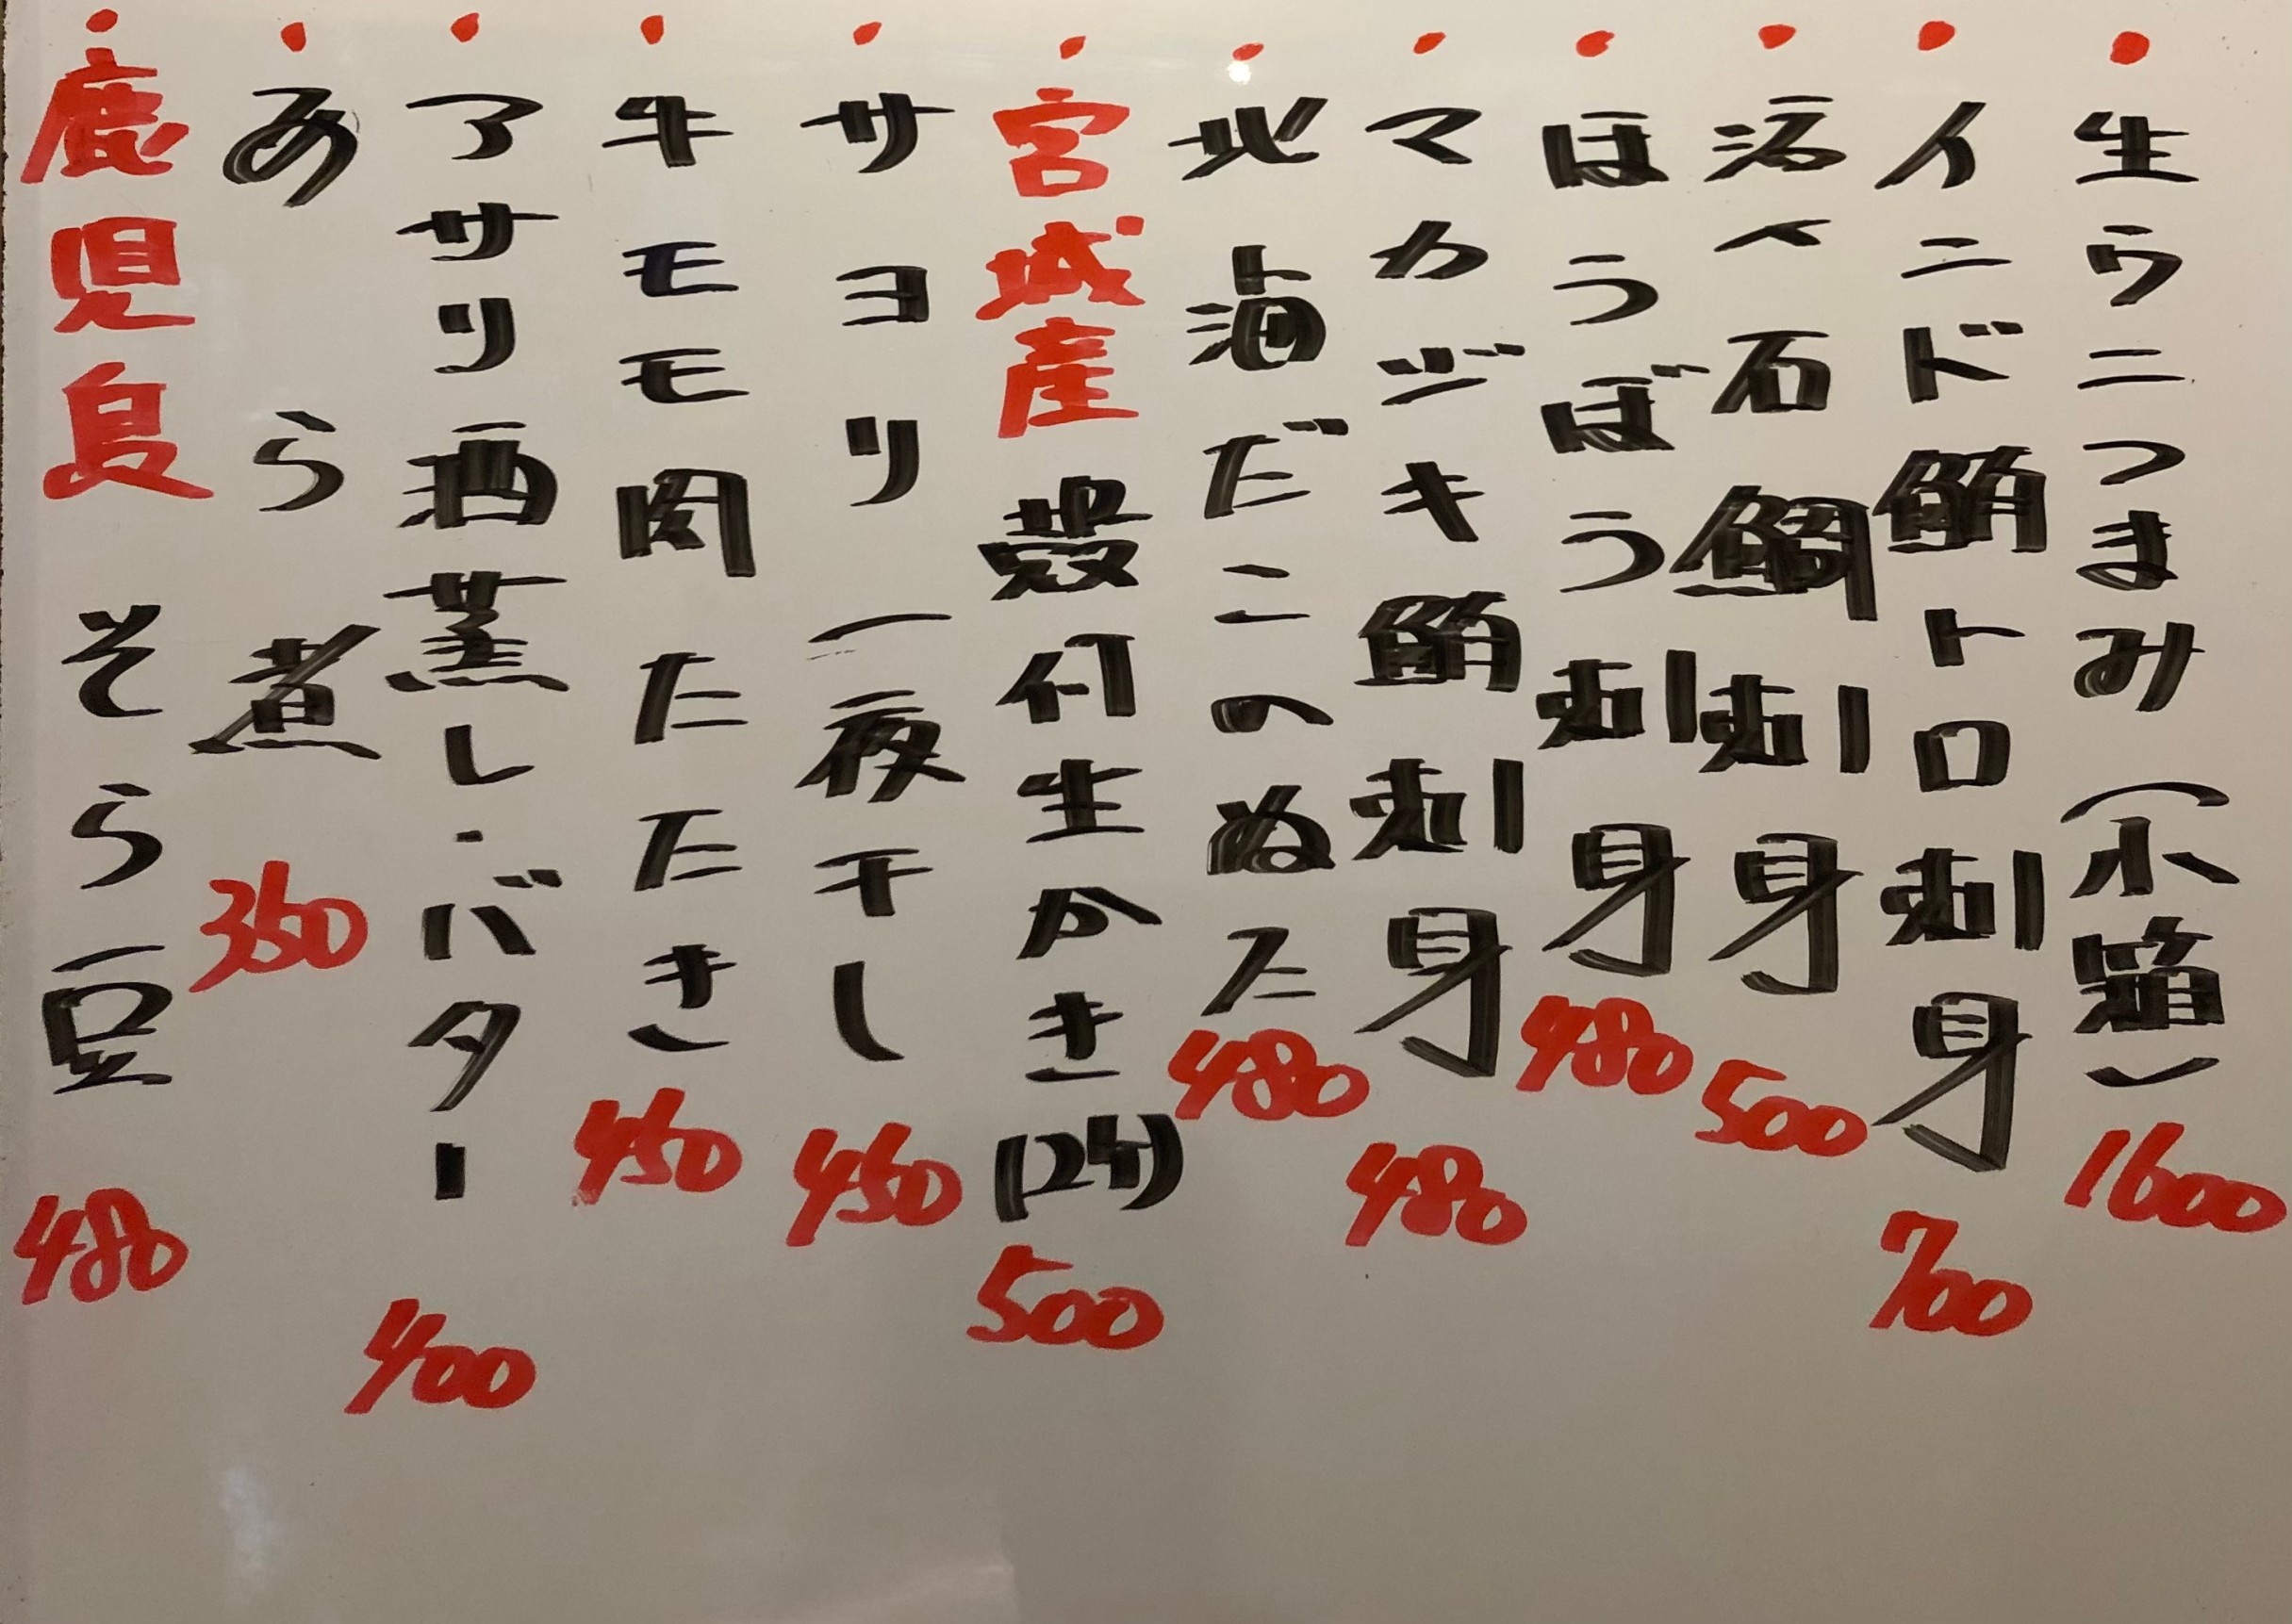 ・生ウニつまみ(小箱)1600
・インド鮪トロ刺身 700
・活〆石鯛刺身 500
・ほうぼう刺身 480
・マカジキ鮪刺身 480
・北海だこのぬた 480
・宮城産殻付生かき(2ケ) 500
・サヨリ一夜干し 450
・牛モモ肉たたき 450
・アサリ酒蒸し・バター 400
・あら煮 350
・鹿児島 そら豆 480